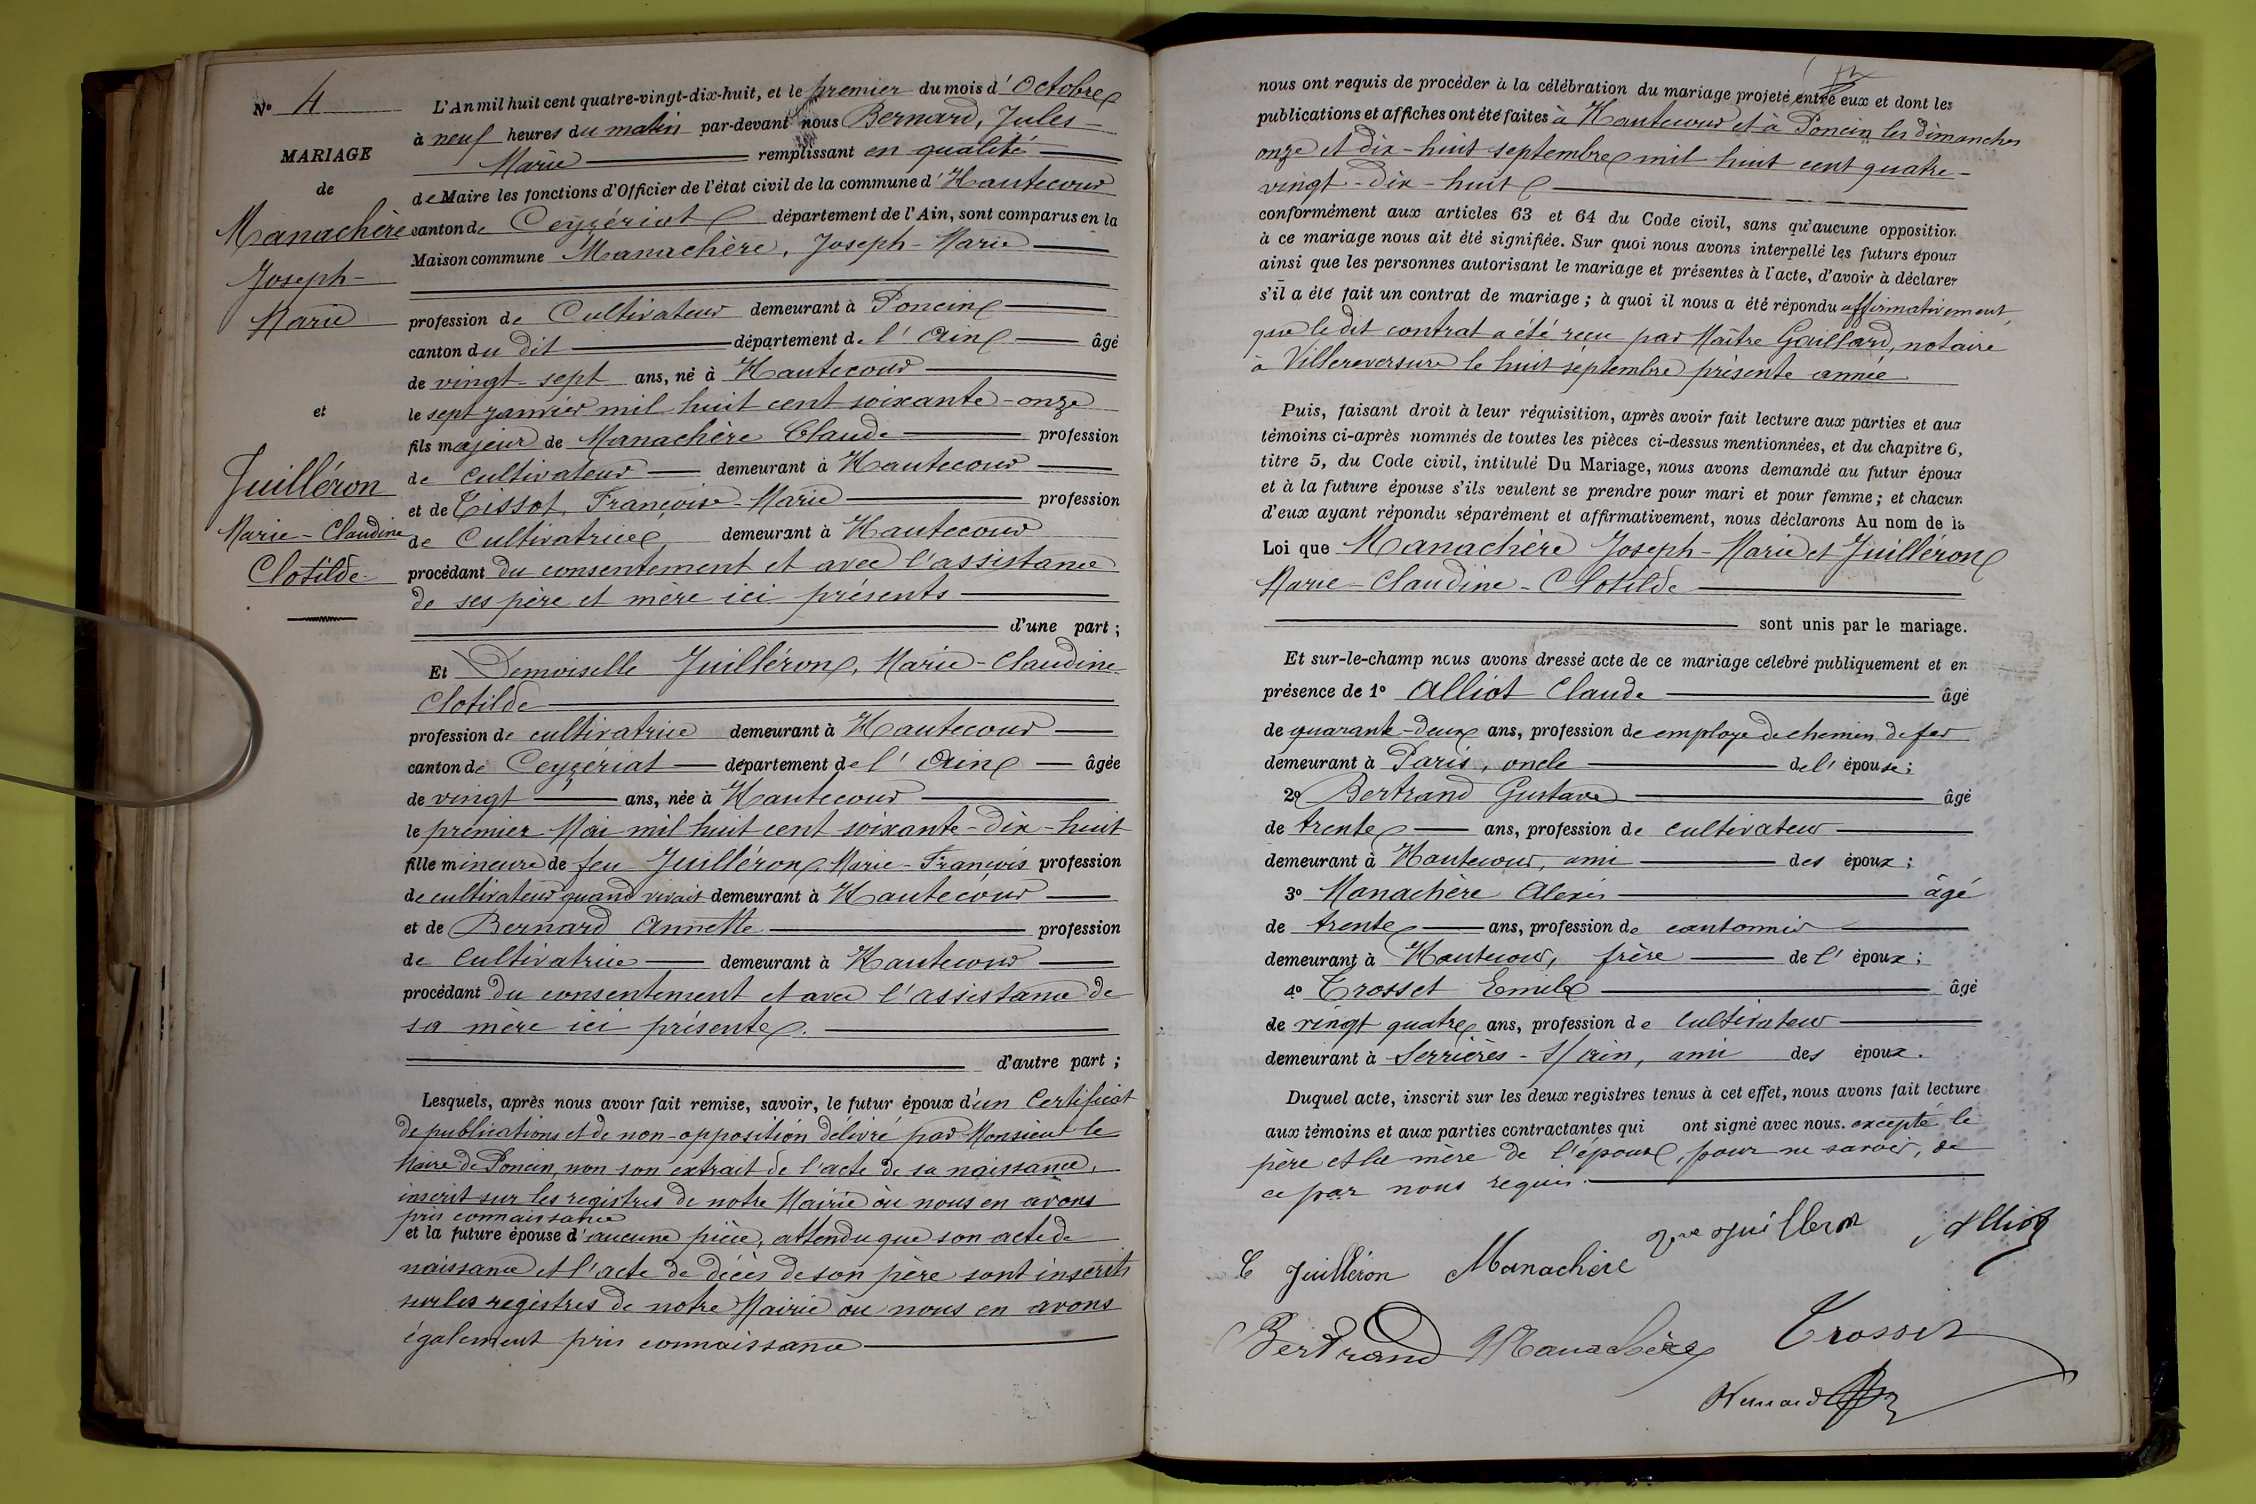 N° 4
MARIAGE
de
Manachère
Joseph-
Marie
et
Juilléron
Marie-Claudine
Clotilde
L'An mil huit cent quatre-vingt-dix-huit, et le premier du mois d'Octobre
à neuf heures du matin par-devant nous Bernard, Jules-
Marie remplissant en qualité
de Maire les fonctions d'Officier de l'état civil de la commune d'Hautecour
canton de Ceyzériat département de l'Ain, sont comparus en la
Maison commune Manachère, Joseph-Marie
profession de Cultivateur demeurant à Poncin
canton du dit département de l'Ain âgé
de vingt-sept ans, né à Hautecour
le sept janvier mil huit cent soixante-onze
fils majeur de Manachère Claude profession
de cultivateur demeurant à Hautecour
et de Tissot, Françoise-Marie profession
de Cultivatrice demeurant à Hautecour
procédant du consentement et avec l'assistance
de ses père et mère ici présents
d'une part ;
Et Demoiselle Juilléron, Marie-Claudine
Clotilde
profession de cultivatrice demeurant à Hautecour
canton de Ceyzériat département de l'Ain âgée
de vingt ans, née à Hautecour
le premier Mai mil huit cent soixante-dix-huit
fille mineure de feu Juilléron, Marie-François profession
de cultivateur quand vivait demeurant à Hautecour
et de Bernard Annette profession
de Cultivatrice demeurant à Hautecour
procédant du consentement et avec l'assistance de
sa mère ici présente.
d'autre part ;
Lesquels, après nous avoir fait remise, savoir, le futur époux d'un Certificat
de publications et de non-opposition délivré par Monsieur le
Maire de Poncin, non son extrait de l'acte de sa naissance,
inscrit sur les registres de notre Mairie où nous en avons
pris connaissance
et la future épouse d'aucune pièce, attendu que son acte de
naissance et l'acte de décès de son père sont inscrits
sur les registres de notre Mairie où nous en avons
également pris connaissance
nous ont requis de procéder à la célébration du mariage projeté entre eux et dont les
publications et affiches ont été faites à Hautecour et à Poncin les dimanches
onze et dix-huit septembre mil huit cent quatre-
vingt-dix-huit
conformément aux articles 63 et 64 du Code civil, sans qu'aucune opposition
à ce mariage nous ait été signifiée. Sur quoi nous avons interpellé les futurs époux
ainsi que les personnes autorisant le mariage et présentes à l'acte, d'avoir à déclarer
s'il a été fait un contrat de mariage ; à quoi il nous a été répondu affirmativement,
que le dit contrat a été reçu par Maître Gaillard, notaire
à Villereversure le huit septembre présente année
Puis, faisant droit à leur réquisition, après avoir fait lecture aux parties et aux
témoins ci-après nommés de toutes les pièces ci-dessus mentionnées, et du chapitre 6,
titre 5, du Code civil, intitulé Du Mariage, nous avons demandé au futur époux
et à la future épouse s'ils veulent se prendre pour mari et pour femme ; et chacun
d'eux ayant répondu séparément et affirmativement, nous déclarons Au nom de la
Loi que Manachère Joseph-Marie et Juilléron
Marie-Claudine-Clotilde
sont unis par le mariage.
Et sur-le-champ nous avons dressé acte de ce mariage célébré publiquement et en
présence de 1° Alliot Claude âgé
de quarante-deux ans, profession de employé de chemin de fer
demeurant à Paris, oncle de l'épouse ;
2° Bertrand Gustave âgé
de trente ans, profession de cultivateur
demeurant à Hautecour, ami des époux ;
3° Manachère Alexis âgé
de trente ans, profession de cantonnier
demeurant à Hautecour, frère de l'époux ;
4° Trosset Emile âgé
de vingt quatre ans, profession de Cultivateur
demeurant à Serrières-S/Ain, ami des époux.
Duquel acte, inscrit sur les deux registres tenus à cet effet, nous avons fait lecture
aux témoins et aux parties contractantes qui ont signé avec nous. excepté le
père et la mère de l'époux, pour ne savoir, de
ce par nous requis.
C Juilléron Manachère Juilleron Alliot
Bertrand Manachère Trosset
Bernard